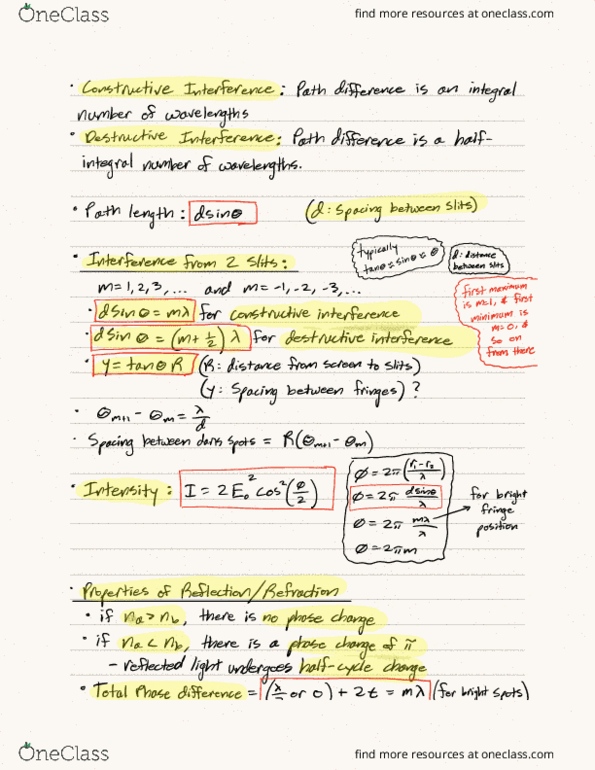 OneClass
find more resources at oneclass.com
• Constructive Interference: Path difference is an integral
number of wavelengths
• Destructive Interference: Path difference is a half-
integral number of wavelengths.
• Path length: dsinθ (d: spacing between slits)
typically
tanθ ≈ sinθ ≈ θ
d: distance
between slits
• Interference from 2 slits:
m = 1, 2, 3, ... and m = -1, -2, -3, ...
• dsinθ = mλ for constructive interference
• dsinθ = (m + 1/2) λ for destructive interference
first maximum
is m=1, & first
minimum is
m=0, &
so on
from there
• y = tanθ R (R: distance from screen to slits)
(y: spacing between fringes) ?
• θm+1 - θm = λ/d
• Spacing between dark spots = R(θm+1 - θm)
• Intensity: I = 2E₀² cos²(ø/2)
ø = 2π (r₁-r₂/λ)
ø = 2π dsinθ/λ
ø = 2π mλ/λ
ø = 2πm
for bright
fringe
position
• Properties of Reflection/Refraction
• if na > nb, there is no phase change
• if na < nb, there is a phase change of π
- reflected light undergoes half-cycle change
• Total Phase difference = (λ/2 or 0) + 2t = mλ (for bright spots)
OneClass
find more resources at oneclass.com